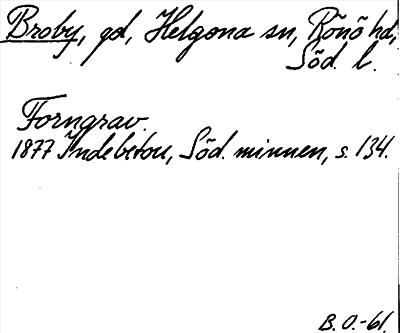 Broby, gd, Helgona sn, Rönö hd,
Söd. l.
Forngrav.
1877 Indebetou, Söd. minnen, s. 134.
B. O.-61.